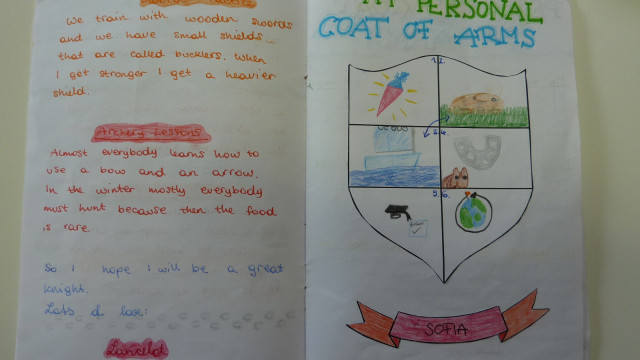 We train with wooden swords
and we have small shields
that are called bucklers. When
I get stronger I get a heavier
shield.
Archery Lessons
Almost everybody learns how to
use a bow and an arrow.
In the winter mostly everybody
must hunt because then the food
is rare.
So I hope I will be a great
knight.
Lots of love:
Lancelot
MY PERSONAL
COAT OF ARMS
SOFIA